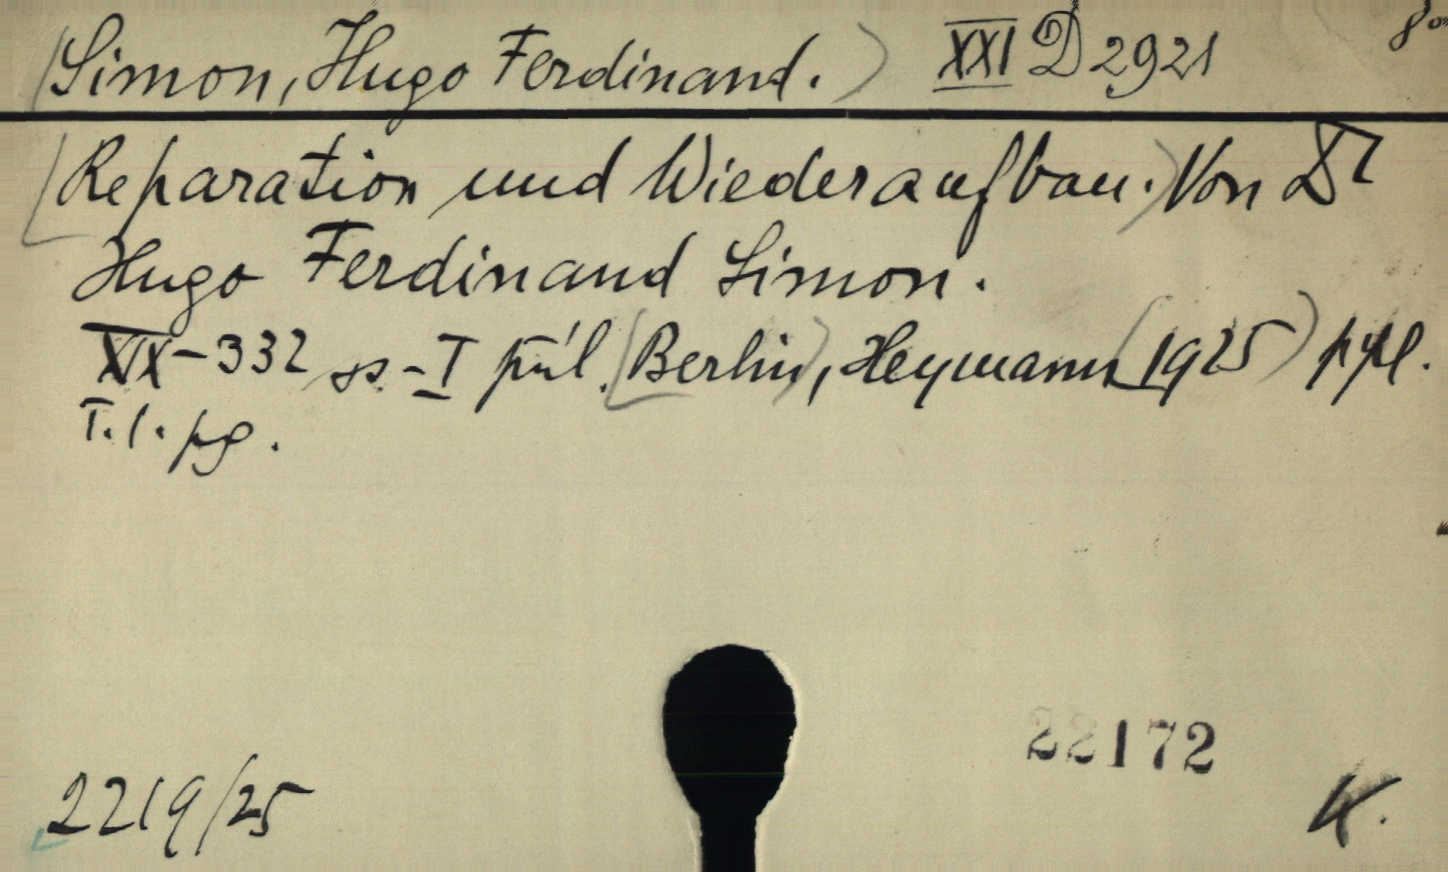 (Simon, Hugo Ferdinand.) XXI D 2921 8°
[Reparation und Wiederaufbau.) Von Dr
Hugo Ferdinand Simon.
XIX-332 ss.-I púl. [Berlin), Heymann [1925)
T. l. pg.
22172
2219/25
K.